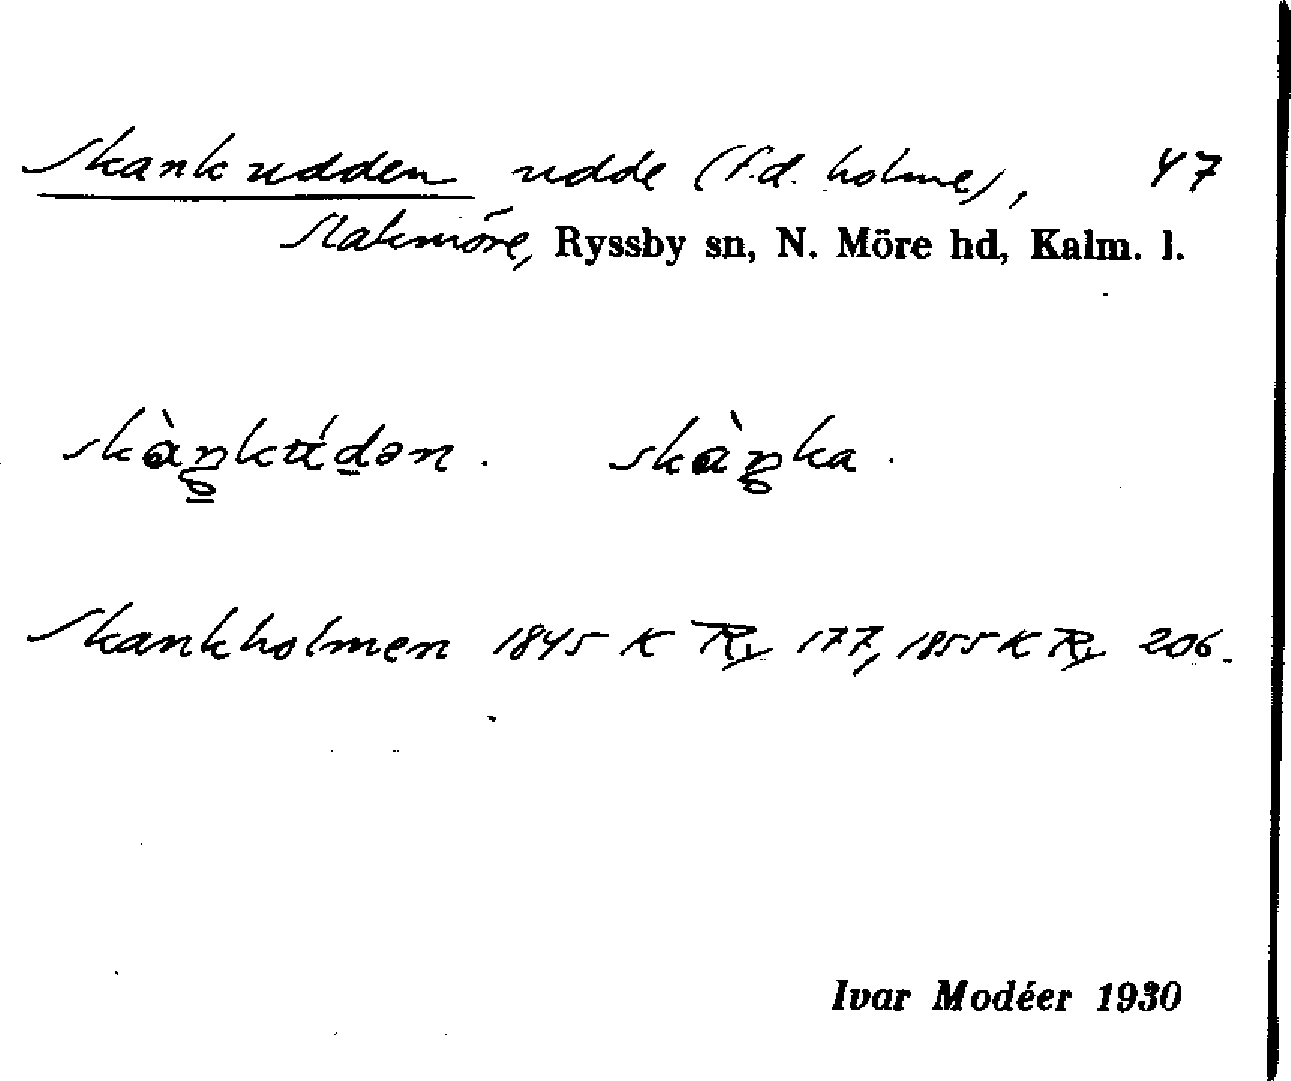 Skankudden udde (f.d. holme), 47
Stakmöre, Ryssby sn, N. Möre hd, Kalm. l.
skàŋkúdən. skàŋka.
Skankholmen 1845 K Ry 177, 1855 K Ry 206.
Ivar Modéer 1930